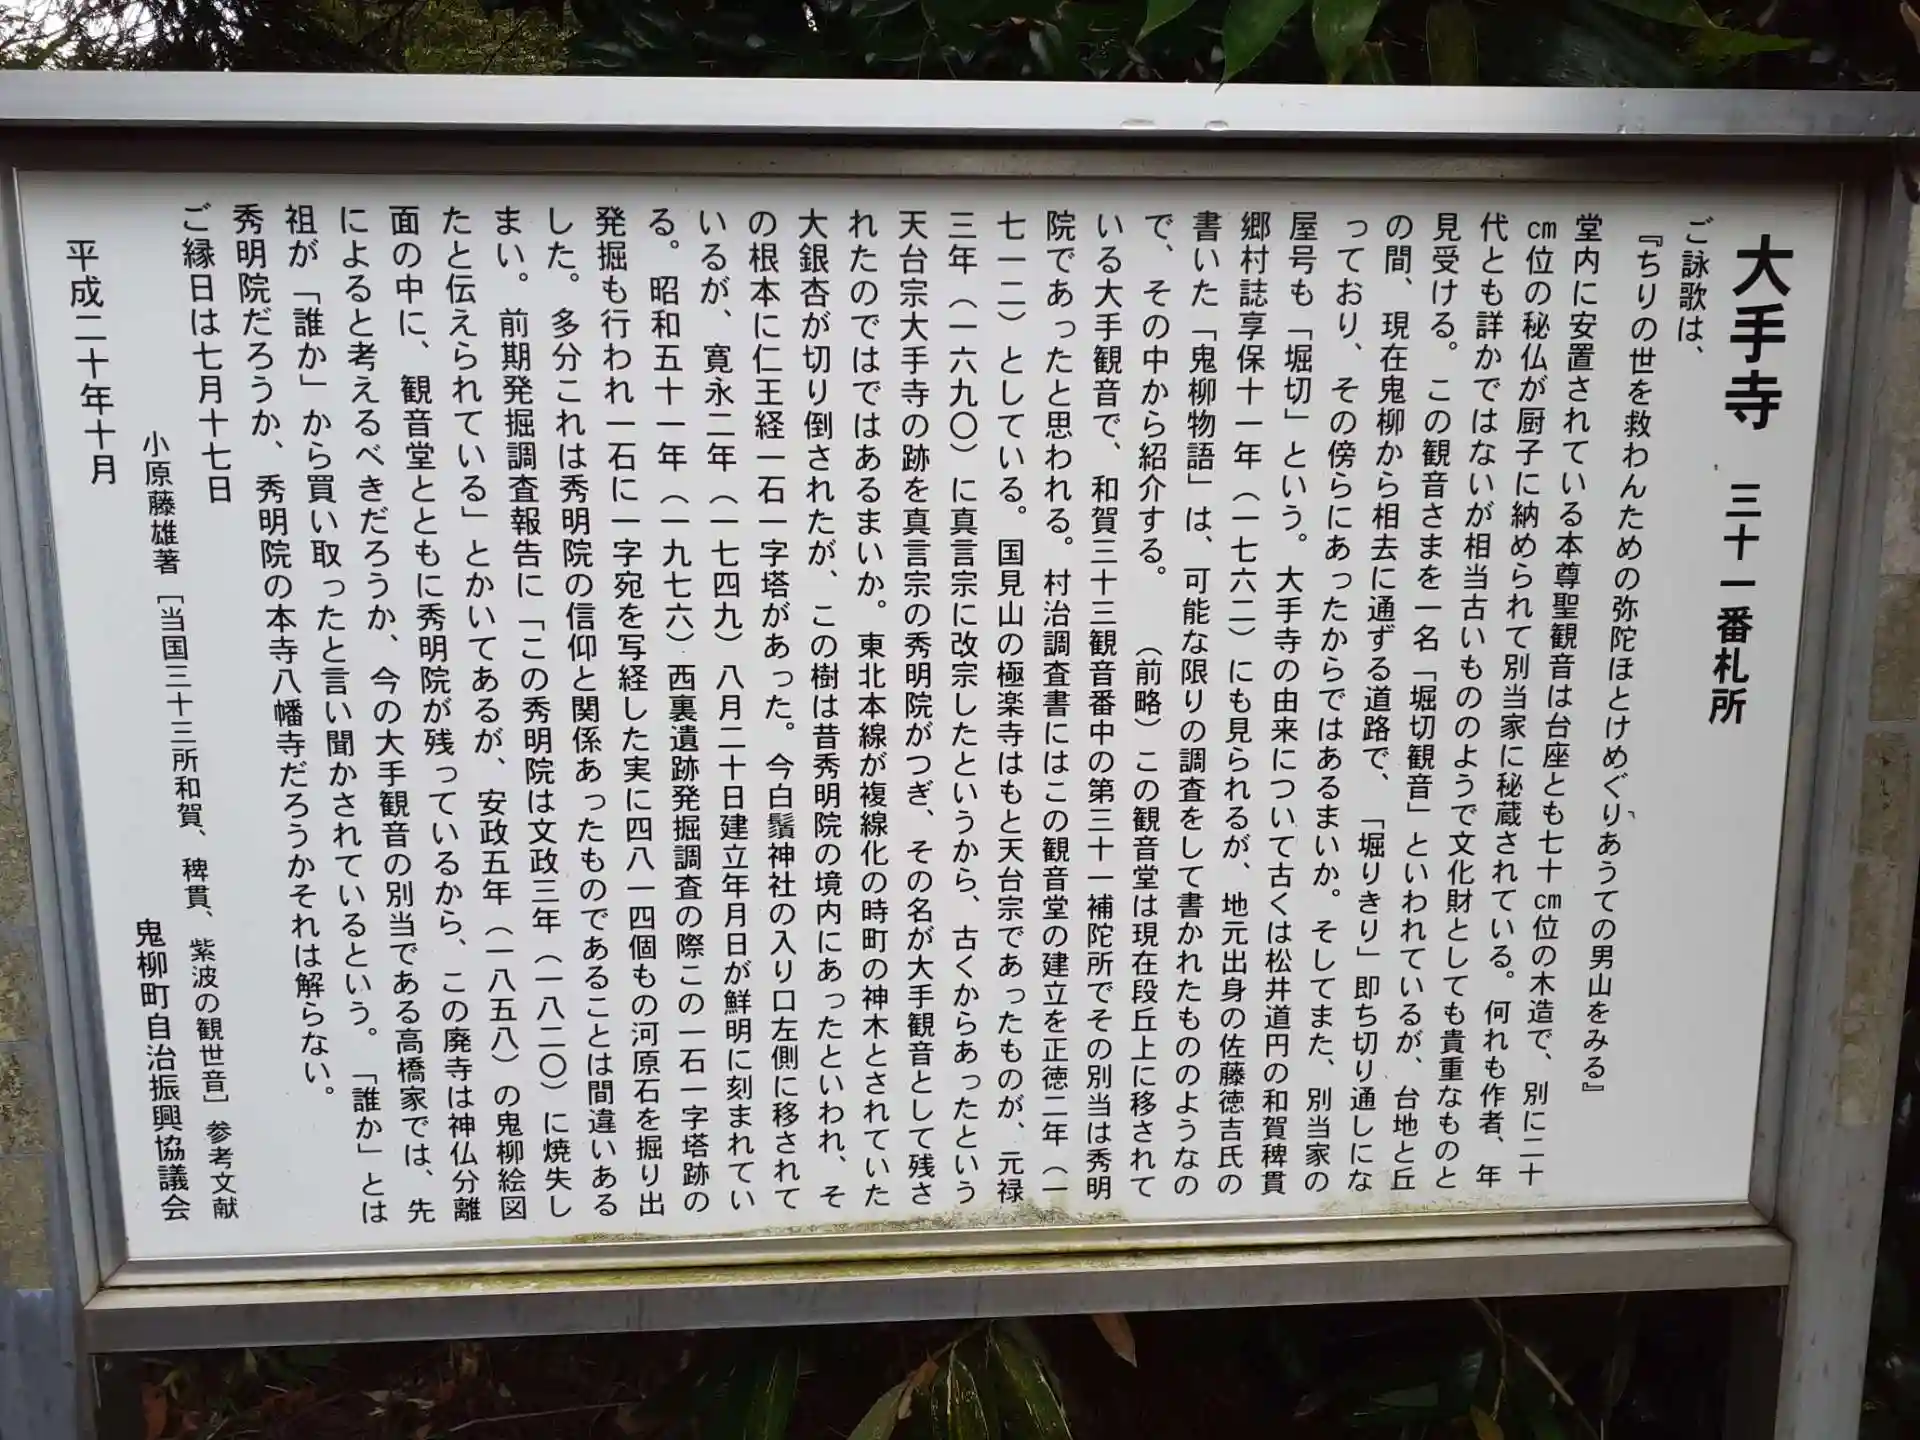 大手寺　三十一番札所
ご詠歌は、
『ちりの世を救わんための弥陀ほとけめぐりあうての男山をみる』
堂内に安置されている本尊聖観音は台座とも七十㎝位の木造で、別に二十
㎝位の秘仏が厨子に納められて別当家に秘蔵されている。何れも作者、年
代とも詳かではないが相当古いもののようで文化財としても貴重なものと
見受ける。この観音さまを一名「堀切観音」といわれているが、台地と丘
の間、現在鬼柳から相去に通ずる道路で、「堀りきり」即ち切り通しにな
っており、その傍らにあったからではあるまいか。そしてまた、別当家の
屋号も「堀切」という。大手寺の由来について古くは松井道円の和賀稗貫
郷村誌享保十一年（一七六二）にも見られるが、地元出身の佐藤徳吉氏の
書いた「鬼柳物語」は、可能な限りの調査をして書かれたもののようなの
で、その中から紹介する。　　（前略）この観音堂は現在段丘上に移されて
いる大手観音で、和賀三十三観音番中の第三十一補陀所でその別当は秀明
院であったと思われる。村治調査書にはこの観音堂の建立を正徳二年（一
七一二）としている。国見山の極楽寺はもと天台宗であったものが、元禄
三年（一六九〇）に真言宗に改宗したというから、古くからあったという
天台宗大手寺の跡を真言宗の秀明院がつぎ、その名が大手観音として残さ
れたのではではあるまいか。東北本線が複線化の時町の神木とされていた
大銀杏が切り倒されたが、この樹は昔秀明院の境内にあったといわれ、そ
の根本に仁王経一石一字塔があった。今白鬚神社の入り口左側に移されて
いるが、寛永二年（一七四九）八月二十日建立年月日が鮮明に刻まれてい
る。昭和五十一年（一九七六）西裏遺跡発掘調査の際この一石一字塔跡の
発掘も行われ一石に一字宛を写経した実に四八一四個もの河原石を掘り出
した。多分これは秀明院の信仰と関係あったものであることは間違いある
まい。前期発掘調査報告に「この秀明院は文政三年（一八二〇）に焼失し
たと伝えられている」とかいてあるが、安政五年（一八五八）の鬼柳絵図
面の中に、観音堂とともに秀明院が残っているから、この廃寺は神仏分離
によると考えるべきだろうか、今の大手観音の別当である高橋家では、先
祖が「誰か」から買い取ったと言い聞かされているという。「誰か」とは
秀明院だろうか、秀明院の本寺八幡寺だろうかそれは解らない。
ご縁日は七月十七日
小原藤雄著［当国三十三所和賀、稗貫、紫波の観世音］参考文献
鬼柳町自治振興協議会
平成二十年十月